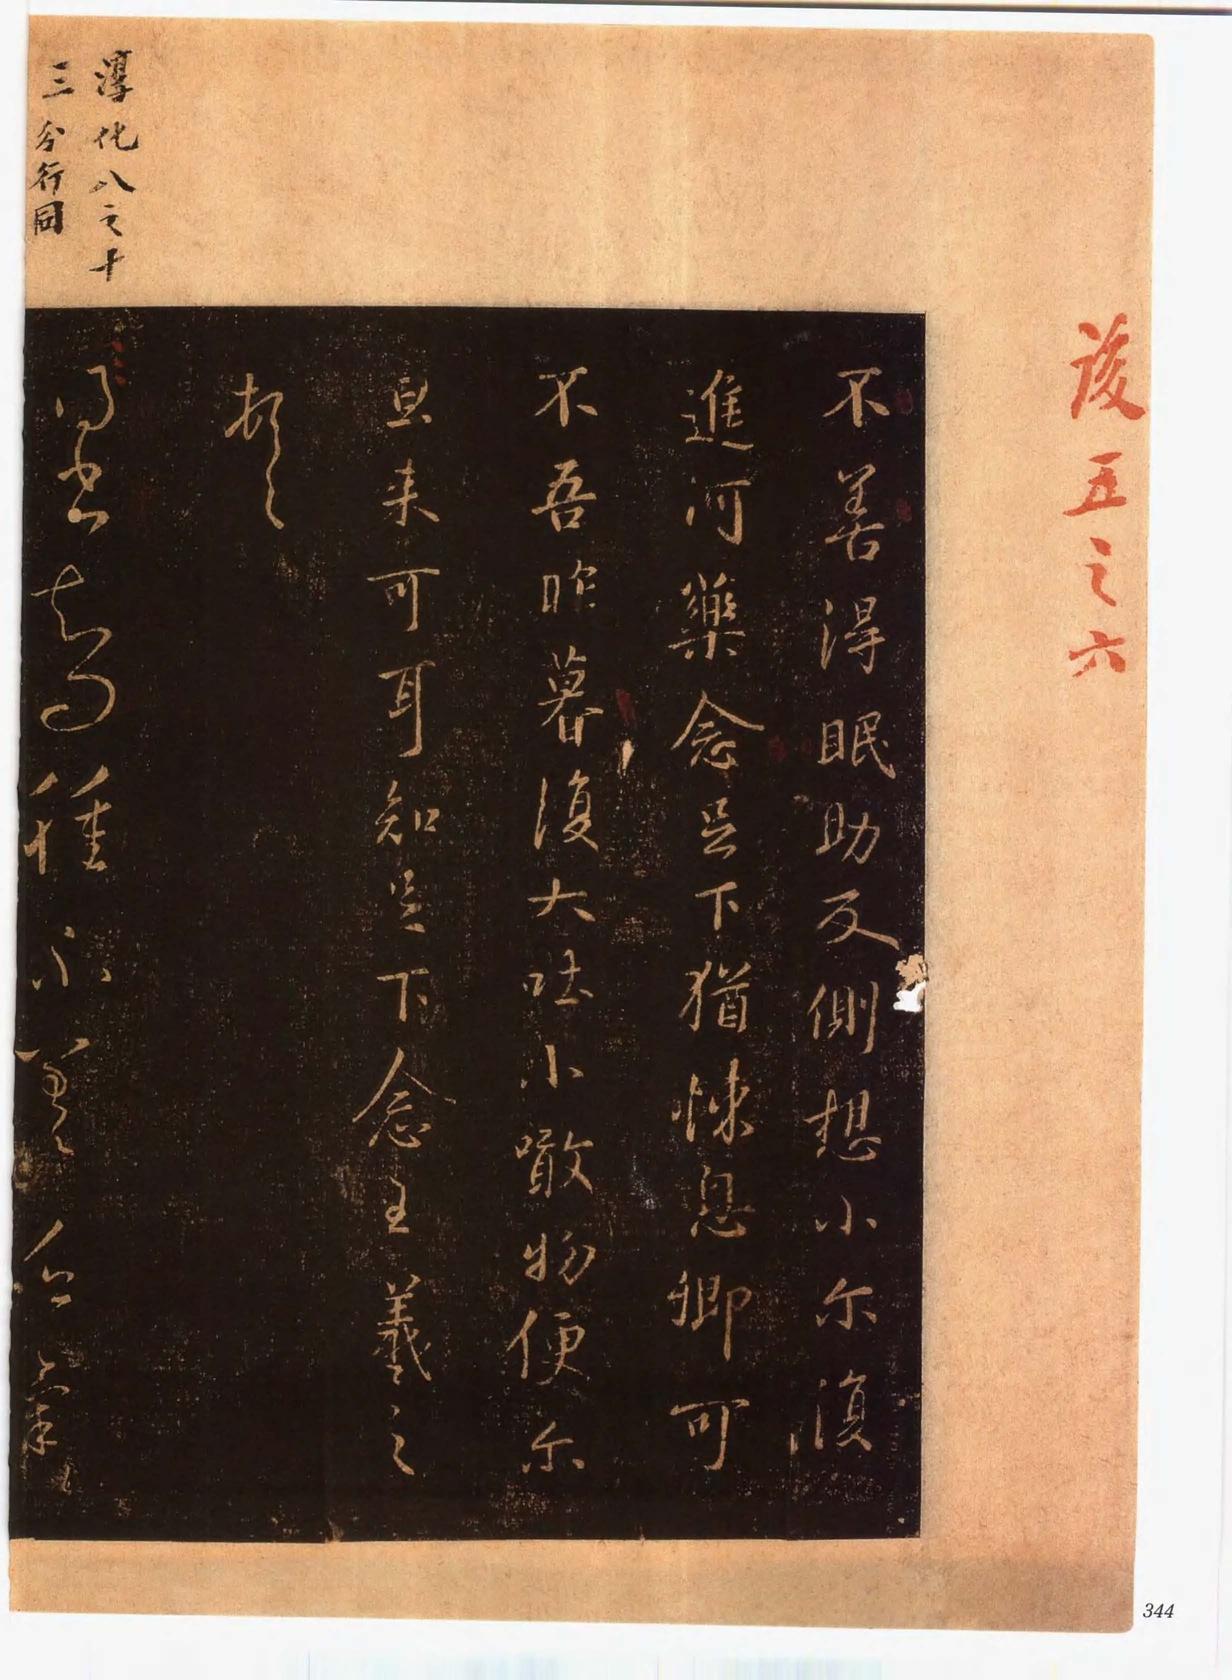 後五之六
不善得眠助反側想小尔復
進河藥念足下猶悚息卿可
不吾昨暮復大吐小噉物便尔
旦来可耳知足下念至羲之
頓首
淳化八之十
三分行同
得書知問腫不差乏氣
344